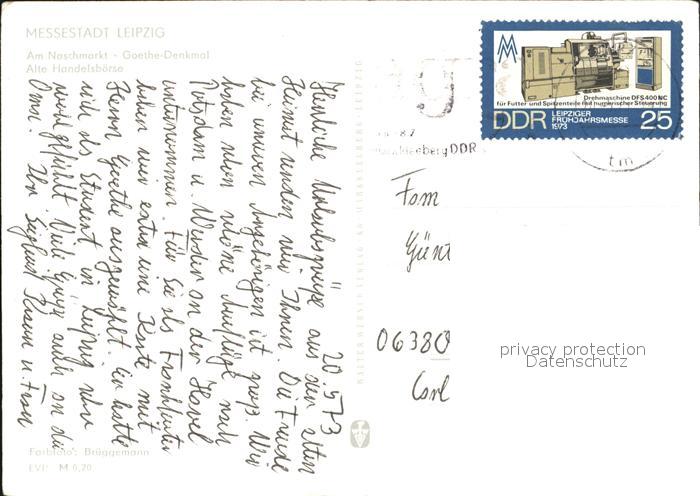 MESSESTADT LEIPZIG
Am Naschmarkt - Goethe-Denkmal
Alte Handelsbörse
20.5.73
Herzliche Urlaubsgrüße aus der alten
Heimat senden wir Ihnen. Die Freude
bei unseren Angehörigen ist groß. Wir
haben schon schöne Ausflüge nach
Potsdam u. Werder an der Havel
unternommen. Für Sie als Frankfurter
haben wir extra eine Karte mit
Herrn Goethe ausgewählt. Er hatte
sich als Student in Leipzig sehr
wohl gefühlt. Viele Grüße auch an die
Oma. Ihr Siegfried u. Frau
Farbfoto: Brüggemann
EVP M 0,20
Drehmaschine DFS 400 NC
für Futter und Spitzenteile mit numerischer Steuerung
DDR LEIPZIGER FRÜHJAHRSMESSE 1973 25
Fam
Günt
06380
privacy protection
Datenschutz